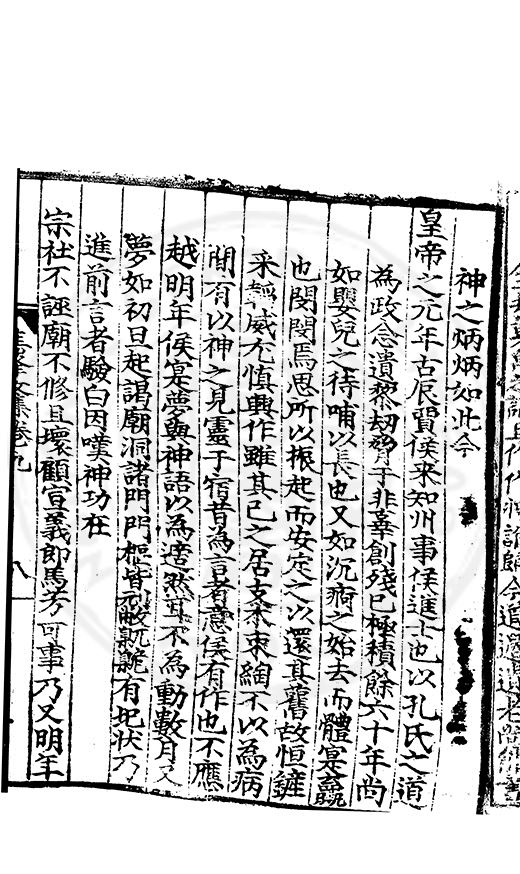 神之炳炳如此今
皇帝之元年古辰賈侯来知州事侯進士也以孔氏之道
為政念遺黎刼脅于非辜創殘已極積餘六十年尚
如嬰兒之待哺以長也又如沉痾之始去而體寔羸
也閔閔焉思所以振起而安定之以還其舊故恒鏟
采韜威尤慎興作雖其已之居支柰束綯不以為病
間有以神之見靈于宿昔為言者意侯有作也不應
越明年侯寔夢與神語以為適然耳不為動數月又
夢如初旦起謁廟洞諸門門樞皆剥臲卼有圯状乃
進前言者驗白因嘆神功在
宗社不誣廟不修且壞顧宣義郎馬芳可事乃又明年
文集卷九
八